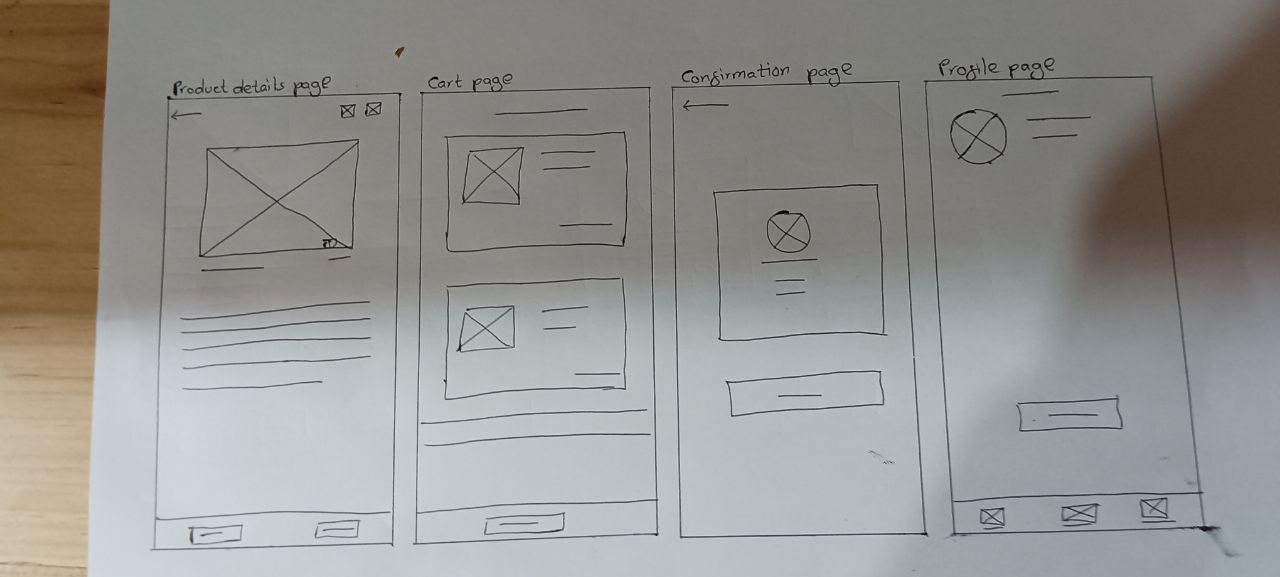 Product details page
Cart page
Confirmation page
Profile page